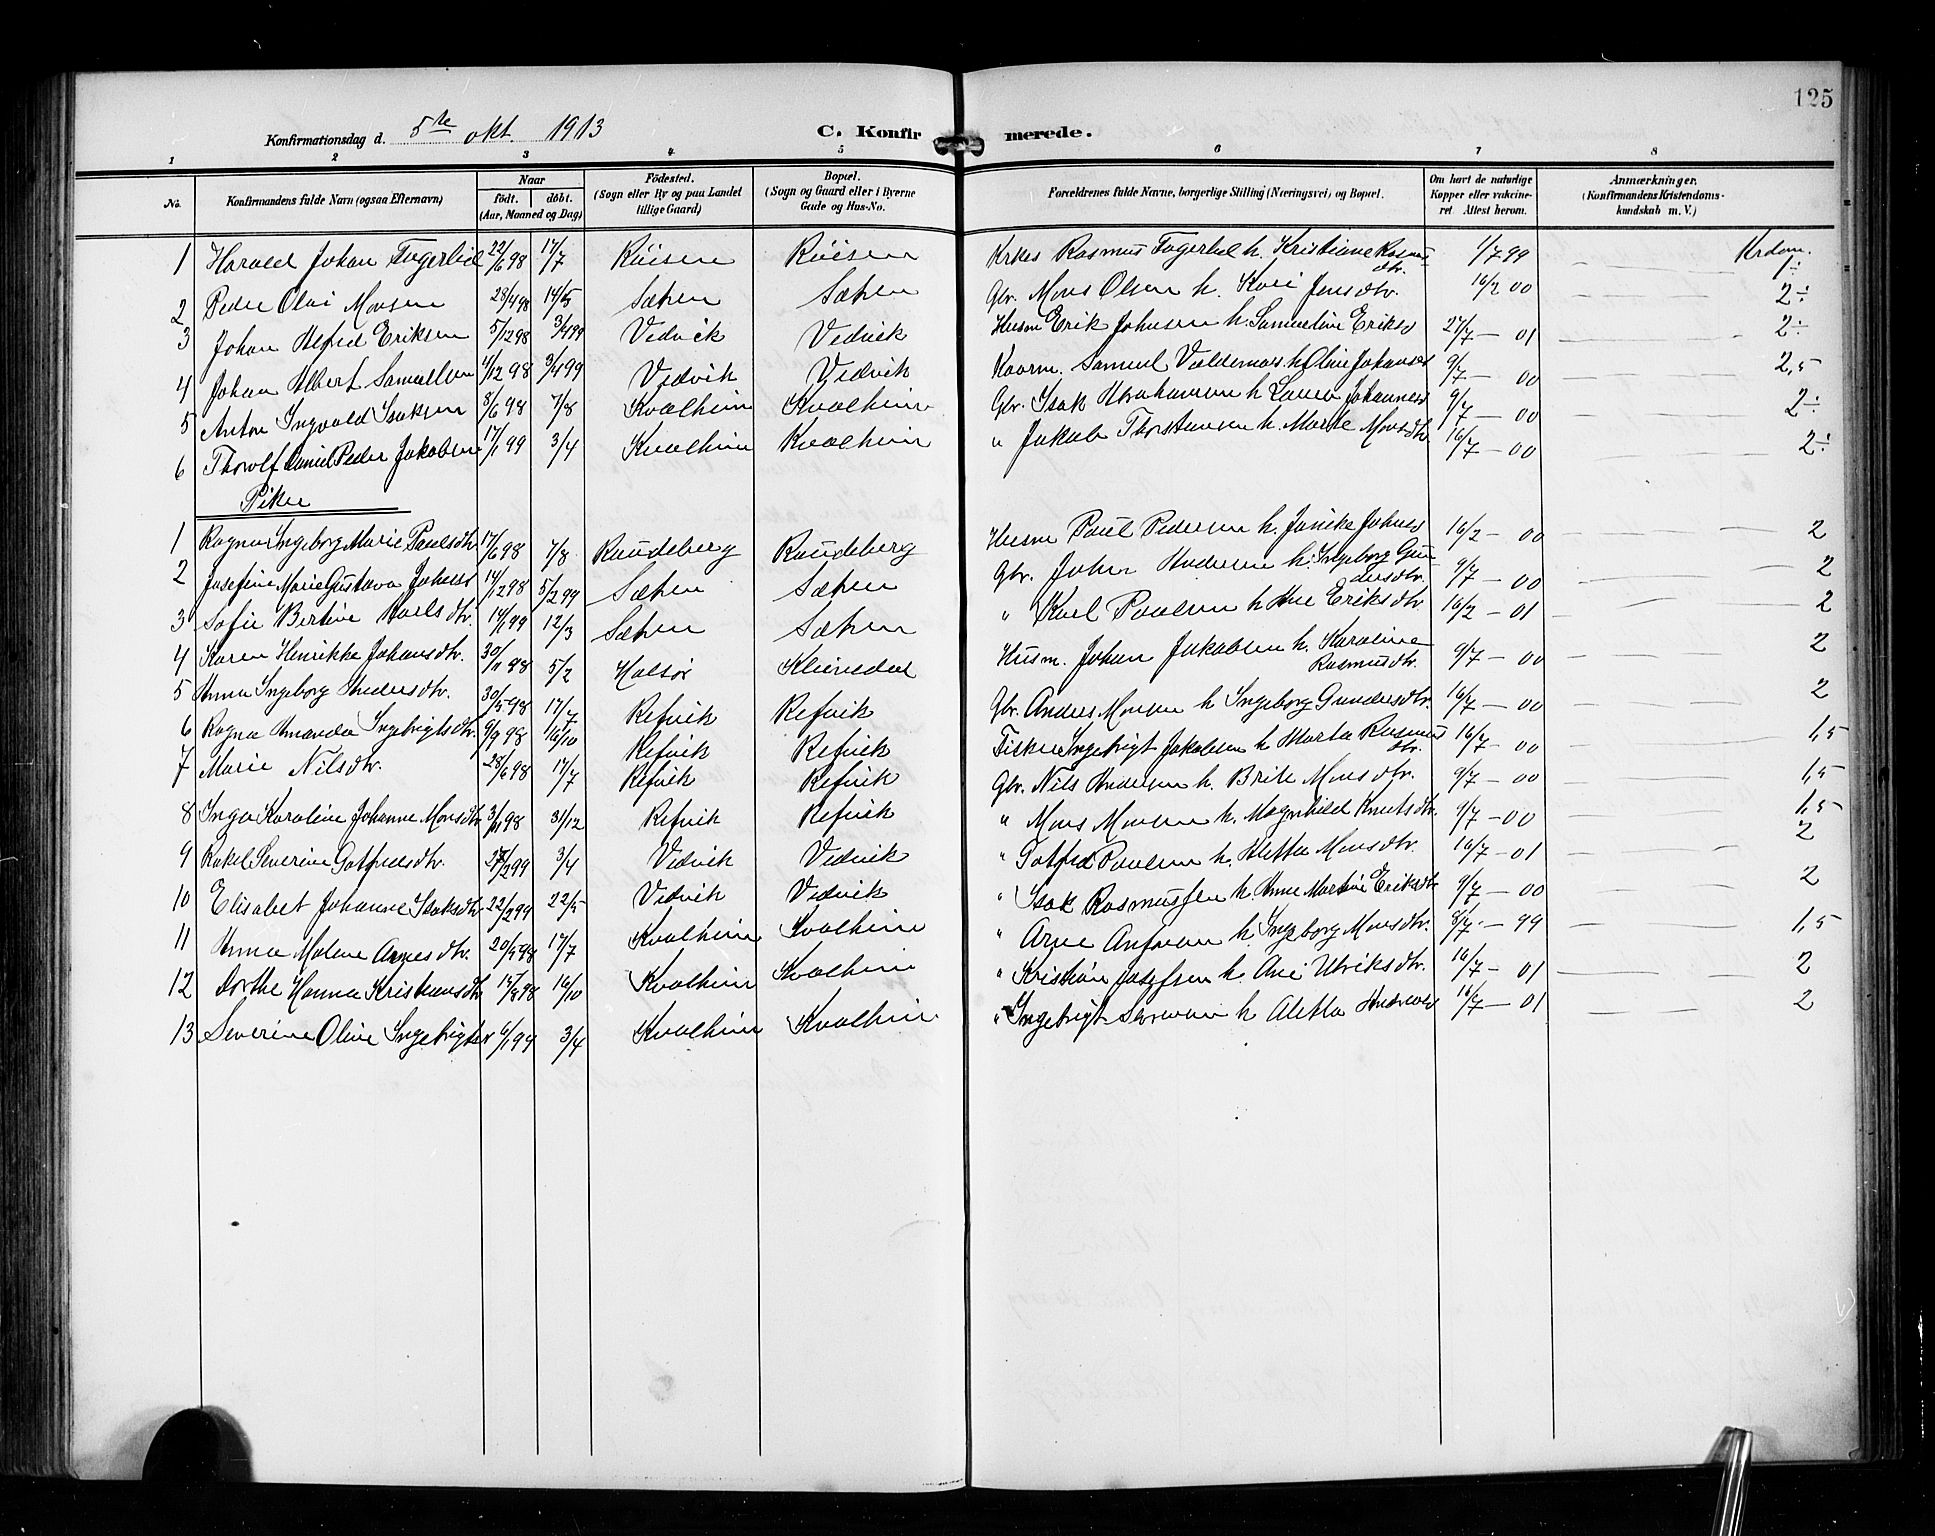 125
Konfirmationsdag d. 5te okt. 1913
C. Konfirmerede.
1 2 3 4 5 6 7 8
No. Konfirmandens fulde Navn (ogsaa Efternavn) Naar födt. döbt. (Aar, Maaned og Dag) Födested. (Sogn eller By og paa Landet tillige Gaard) Bopæl. (Sogn og Gaard eller i Byerne Gade og Hus-No. Forældrenes fulde Navne, borgerlige Stilling (Næringsvei) og Bopæl. Om havt de naturlige Kopper eller vakcineret. Attest herom. Anmærkninger. (Konfirmandens Kristendomskundskab m. V.)
Krdom.
1 Harald Johan Fagerlid 22/6 98 17/7 Röisen Röisen Krkes Rasmus Fagerlid h. Kristiane Rasmusdtr. 1/7 99 1÷
2 Peder Olai Monsen 28/4 98 14/5 Sæhen Sæhen Gbr. Mons Olsen h. Kari Jensdtr. 16/2 00 2÷
3 Johan Alfred Eriksen 5/12 98 3/4 99 Vedvik Vedvik Husm Erik Johnsen h. Samueline Eriksd 27/7 — 01 2÷
4 Johan Albert Samuelsen 4/12 98 3/4 99 Vedvik Vedvik Kaarm. Samuel Valdemars. h. Oline Johansd 9/7 — 00 2,5
5 Anton Ingvald Isaksen 3/6 98 7/8 Kvalheim Kvalheim Gbr. Isak Abrahamsen h Laura Johannesd 9/7 — 00 2÷
6 Thorolf Daniel Peder Jakobsen 17/1 99 3/4 Kvalheim Kvalheim " Jakob Thorstensen h. Marte Monsdtr 16/7 — 00 2÷
Piker
1 Ragna Ingeborg Marie Paulsdtr 17/6 98 7/8 Raudeberg Raudeberg Husm Paul Pedersen h. Janike Johnsd 16/2 — 00 2
2 Josefine Marie Gustava Johnsd 14/12 98 5/2 99 Sæhen Sæhen Gbr. John Andersen h. Ingeborg Gundersdtr. 9/7 — 00 2
3 Sofie Bertine Karlsdtr. 14/1 99 12/3 Sæhen Sæhen " Karl Paulsen h Ane Eriksdtr 16/2 — 01 2
4 Karen Henrikke Johansdtr. 30/11 98 5/2 Halsör Kleivedal Husm. Johan Jakobsen h. Karoline Rasmusdtr. 9/7 — 00 2
5 Anna Ingeborg Andersdtr. 30/5 98 17/7 Refvik Refvik Gbr. Anders Monsen h Ingeborg Gundersdtr. 16/7 — 00 2
6 Ragna Amanda Ingebrigtsdtr. 9/9 98 16/10 Refvik Refvik Fisker Ingebrigt Jakobsen h Marta Rasmusdtr. 16/7 — 00 1,5
7 Marie Nilsdtr. 28/6 98 17/7 Refvik Refvik Gbr. Nils Andersen h. Brite Monsdtr. 9/7 — 00 1,5
8 Inga Karoline Johanne Monsdtr 3/11 98 31/12 Refvik Refvik " Mons Monsen h. Magnhild Knutsdtr. 9/7 — 00 1,5
9 Rakel Severine Gotfredsdtr. 27/2 99 3/4 Vedvik Vedvik " Gotfred Paulsen h. Aletta Monsdtr. 16/7 — 01 2
10 Elisabet Johanne Isaksdtr 22/2 99 22/5 Vedvik Vedvik " Isak Rasmussen h. Anne Martine Eriksdtr 9/7 — 00 2
11 Anna Malene Arnesdtr. 17/7 Kvalheim Kvalheim " Arne h. Ingeborg Monsdtr. 8/7 — 99 1,5
12 Dorthe Hanna Kristiansdtr 16/10 Kvalheim Kvalheim " Kristian Josefsen h. Ane Ulriksdtr. 16/7 — 01 2
13 Severine Oline Ingebrigtsd 6/1 99 3/4 Kvalheim Kvalheim " Ingebrigt h Aletta Andreasd 16/7 — 01 2